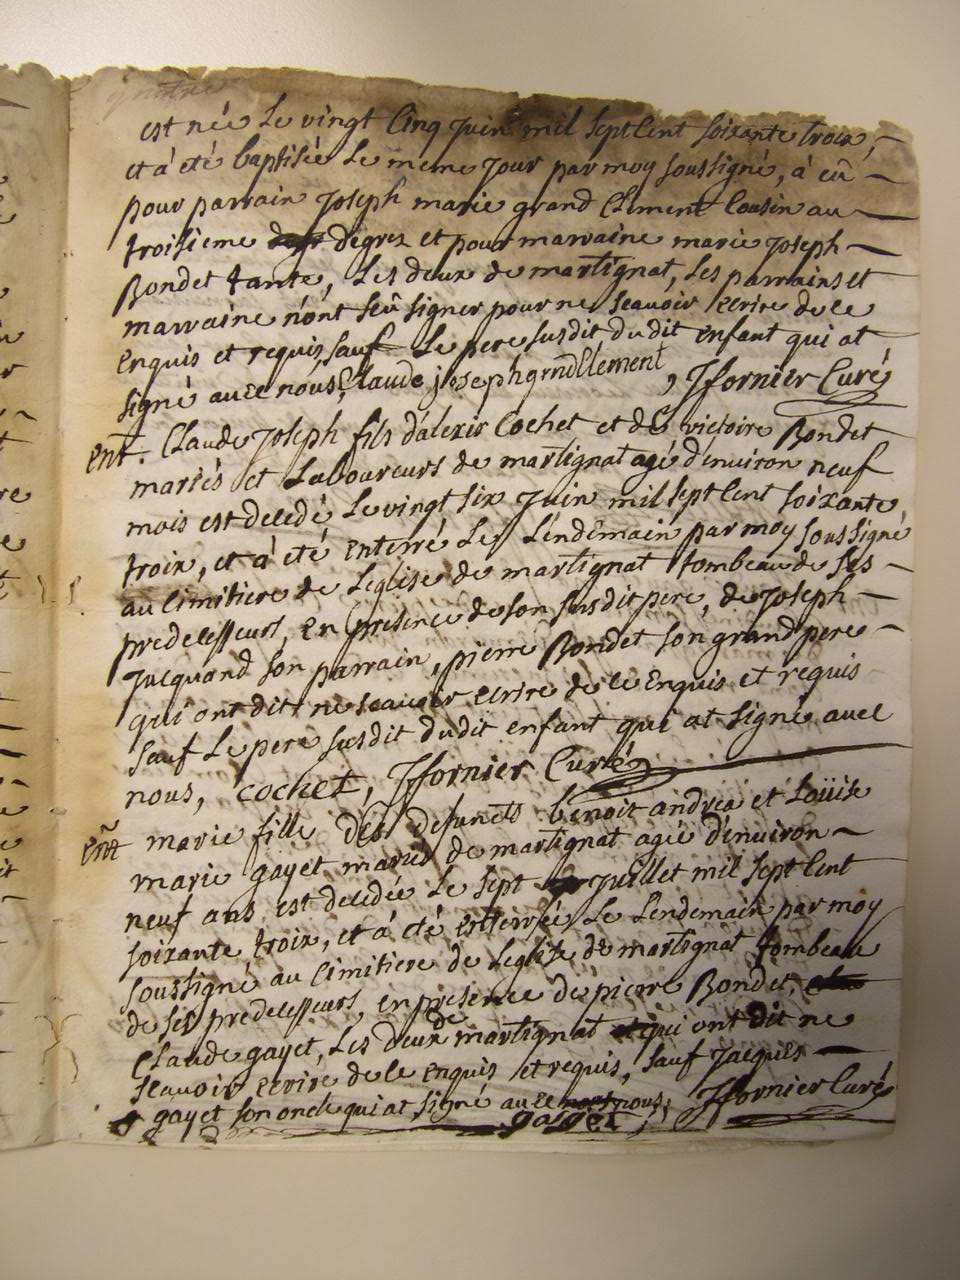 est née Le vingt Cinq Juin mil sept Cent soixante troix,
et à été baptisée Le meme Jour par moy soussigné, à eû
pour parrain Joseph marie grand Clement Cousin au
troisieme degrez et pour marraine marie Joseph
Bondet tante, Les deux de martignat, Les parrains et
marraine n'ont sçû signer pour ne sçauoir ecrire de ce
enquis et requis sauf Le pere susdit dudit enfant qui at
signé auec nous, Claude josephgrndClement, Jfornier Curé
Ent. Claude Joseph fils d'alexix Cochet et de victoire Bondet
mariés et Laboureurs de martignat agé d'enuiron neuf
mois est decedé Le vingt six Juin mil sept Cent soixante
troix, et à été enterré Le Lendemain par moy soussigné
au Cimitiere de Leglise de martignat tombeau de ses
predecesseurs, en presence de son susdit pere, de Joseph
Jacquand son parrain, pierre Bondet son grand pere
qui ont dit ne scauoir ecrire de ce enquis et requis
sauf Le pere susdit dudit enfant qui at signé auec
nous, cochet, Jfornier Curé
Ent marie fille des defuncts benoit andréa et Loüise
marie gayet mariés de martignat agée d'enuiron
neuf ans est decedée Le sept Juillet mil sept Cent
soixante troix, et à été enterrée Le Lendemain par moy
soussigné au Cimitiere de Leglise de martignat tombeau
de ses predecesseurs, en presence de pierre Bondet,
Claude gayet, Les deux de martignat qui ont dit ne
scauoir ecrire de ce enquis et requis, sauf Jacques
gayet son oncle qui at signé auec nous, Jfornier Curé
gaiget